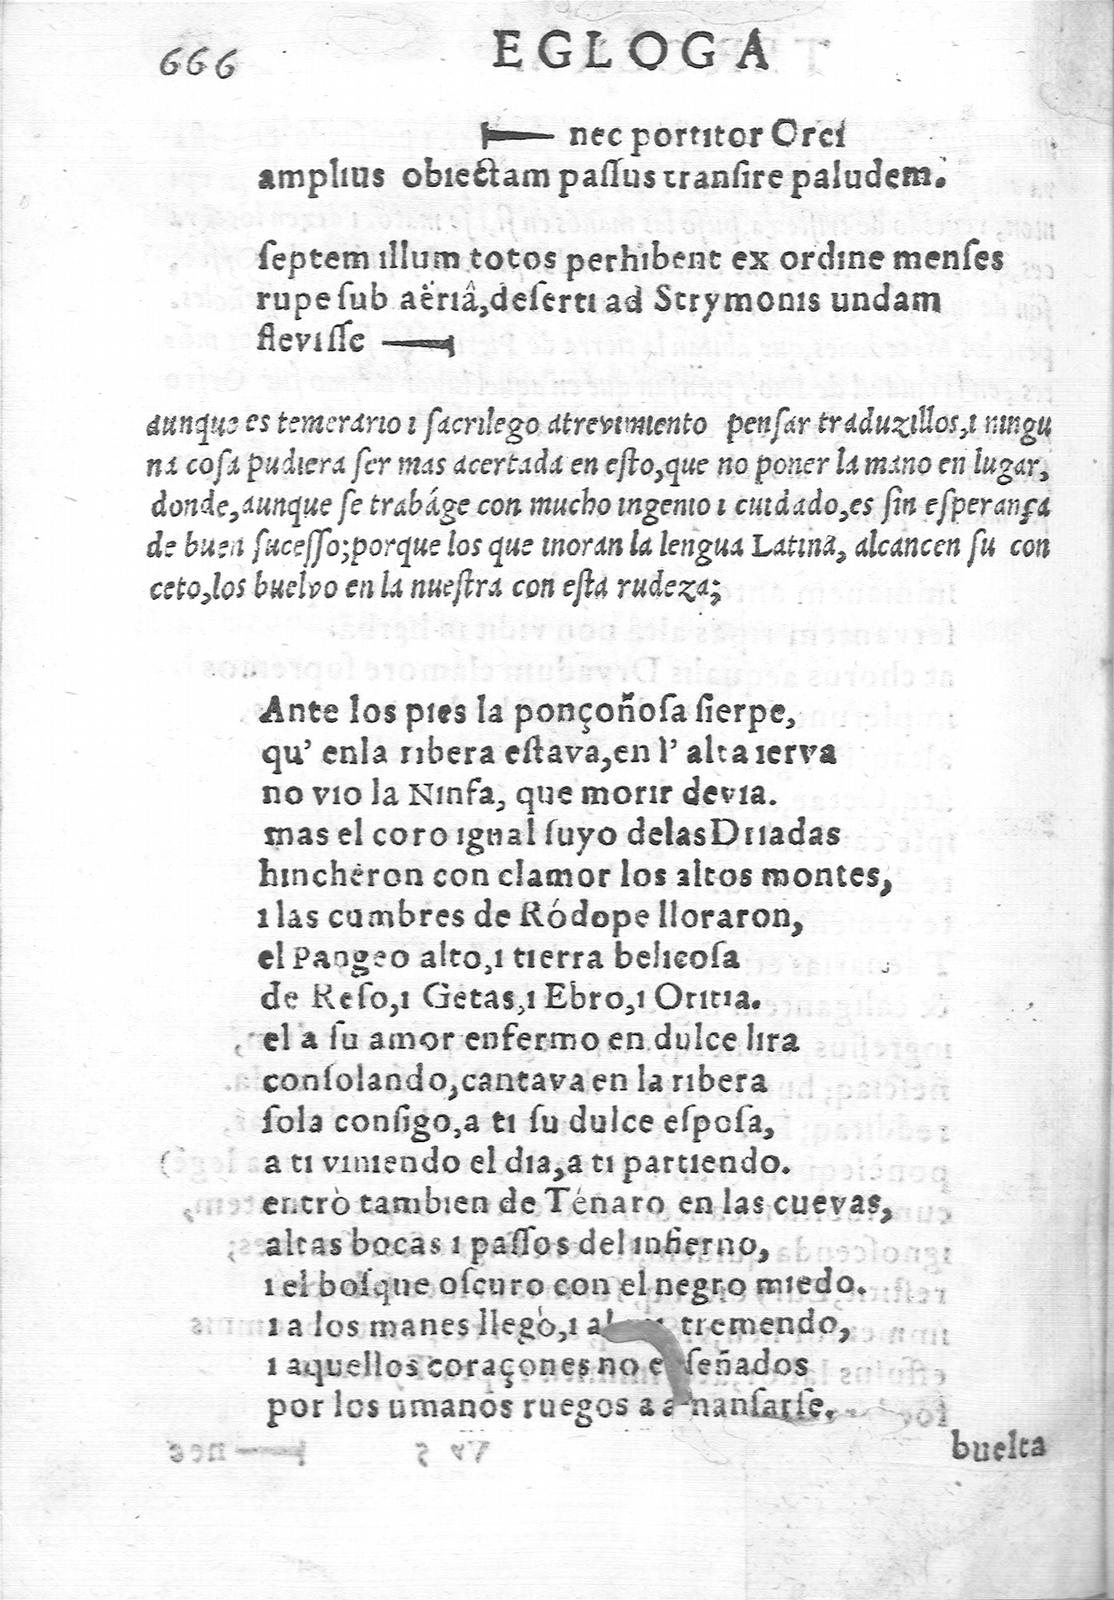 666 EGLOGA
nec portitor Orci
amplius obiectam paſſus tranſire paludem.
ſeptem illum totos perhibent ex ordine menſes
rupe ſub aëriâ, deſerti ad Strymonis undam
fleviſſe
aunque es temerario i ſacrilego atrevimiento penſar traduzillos, i ningu
na coſa pudiera ſer mas acertada en eſto, que no poner la mano en lugar,
donde, aunque ſe trabáge con mucho ingenio i cuidado, es ſin eſperança
de buen ſuceſſo; porque los que inoran la lengua Latina, alcancen ſu con
ceto, los buelvo en la nueſtra con eſta rudeza;
Ante los pies la ponçoñoſa ſierpe,
qu' enla ribera eſtava, en l' alta ierva
no vio la Ninfa, que morir devia.
mas el coro igual ſuyo delas Driadas
hinchèron con clamor los altos montes,
i las cumbres de Ródope lloraron,
el Pangeo alto, i tierra belicoſa
de Reſo, i Getas, i Ebro, i Oritia.
el a ſu amor enfermo en dulce lira
conſolando, cantava en la ribera
ſola conſigo, a ti ſu dulce eſpoſa,
a ti viniendo el dia, a ti partiendo.
entrò tambien de Ténaro en las cuevas,
altas bocas i paſſos del infierno,
i el boſque oſcuro con el negro miedo.
i a los manes llegò, i tremendo,
i aquellos coraçones no
por los umanos ruegos a
buelta